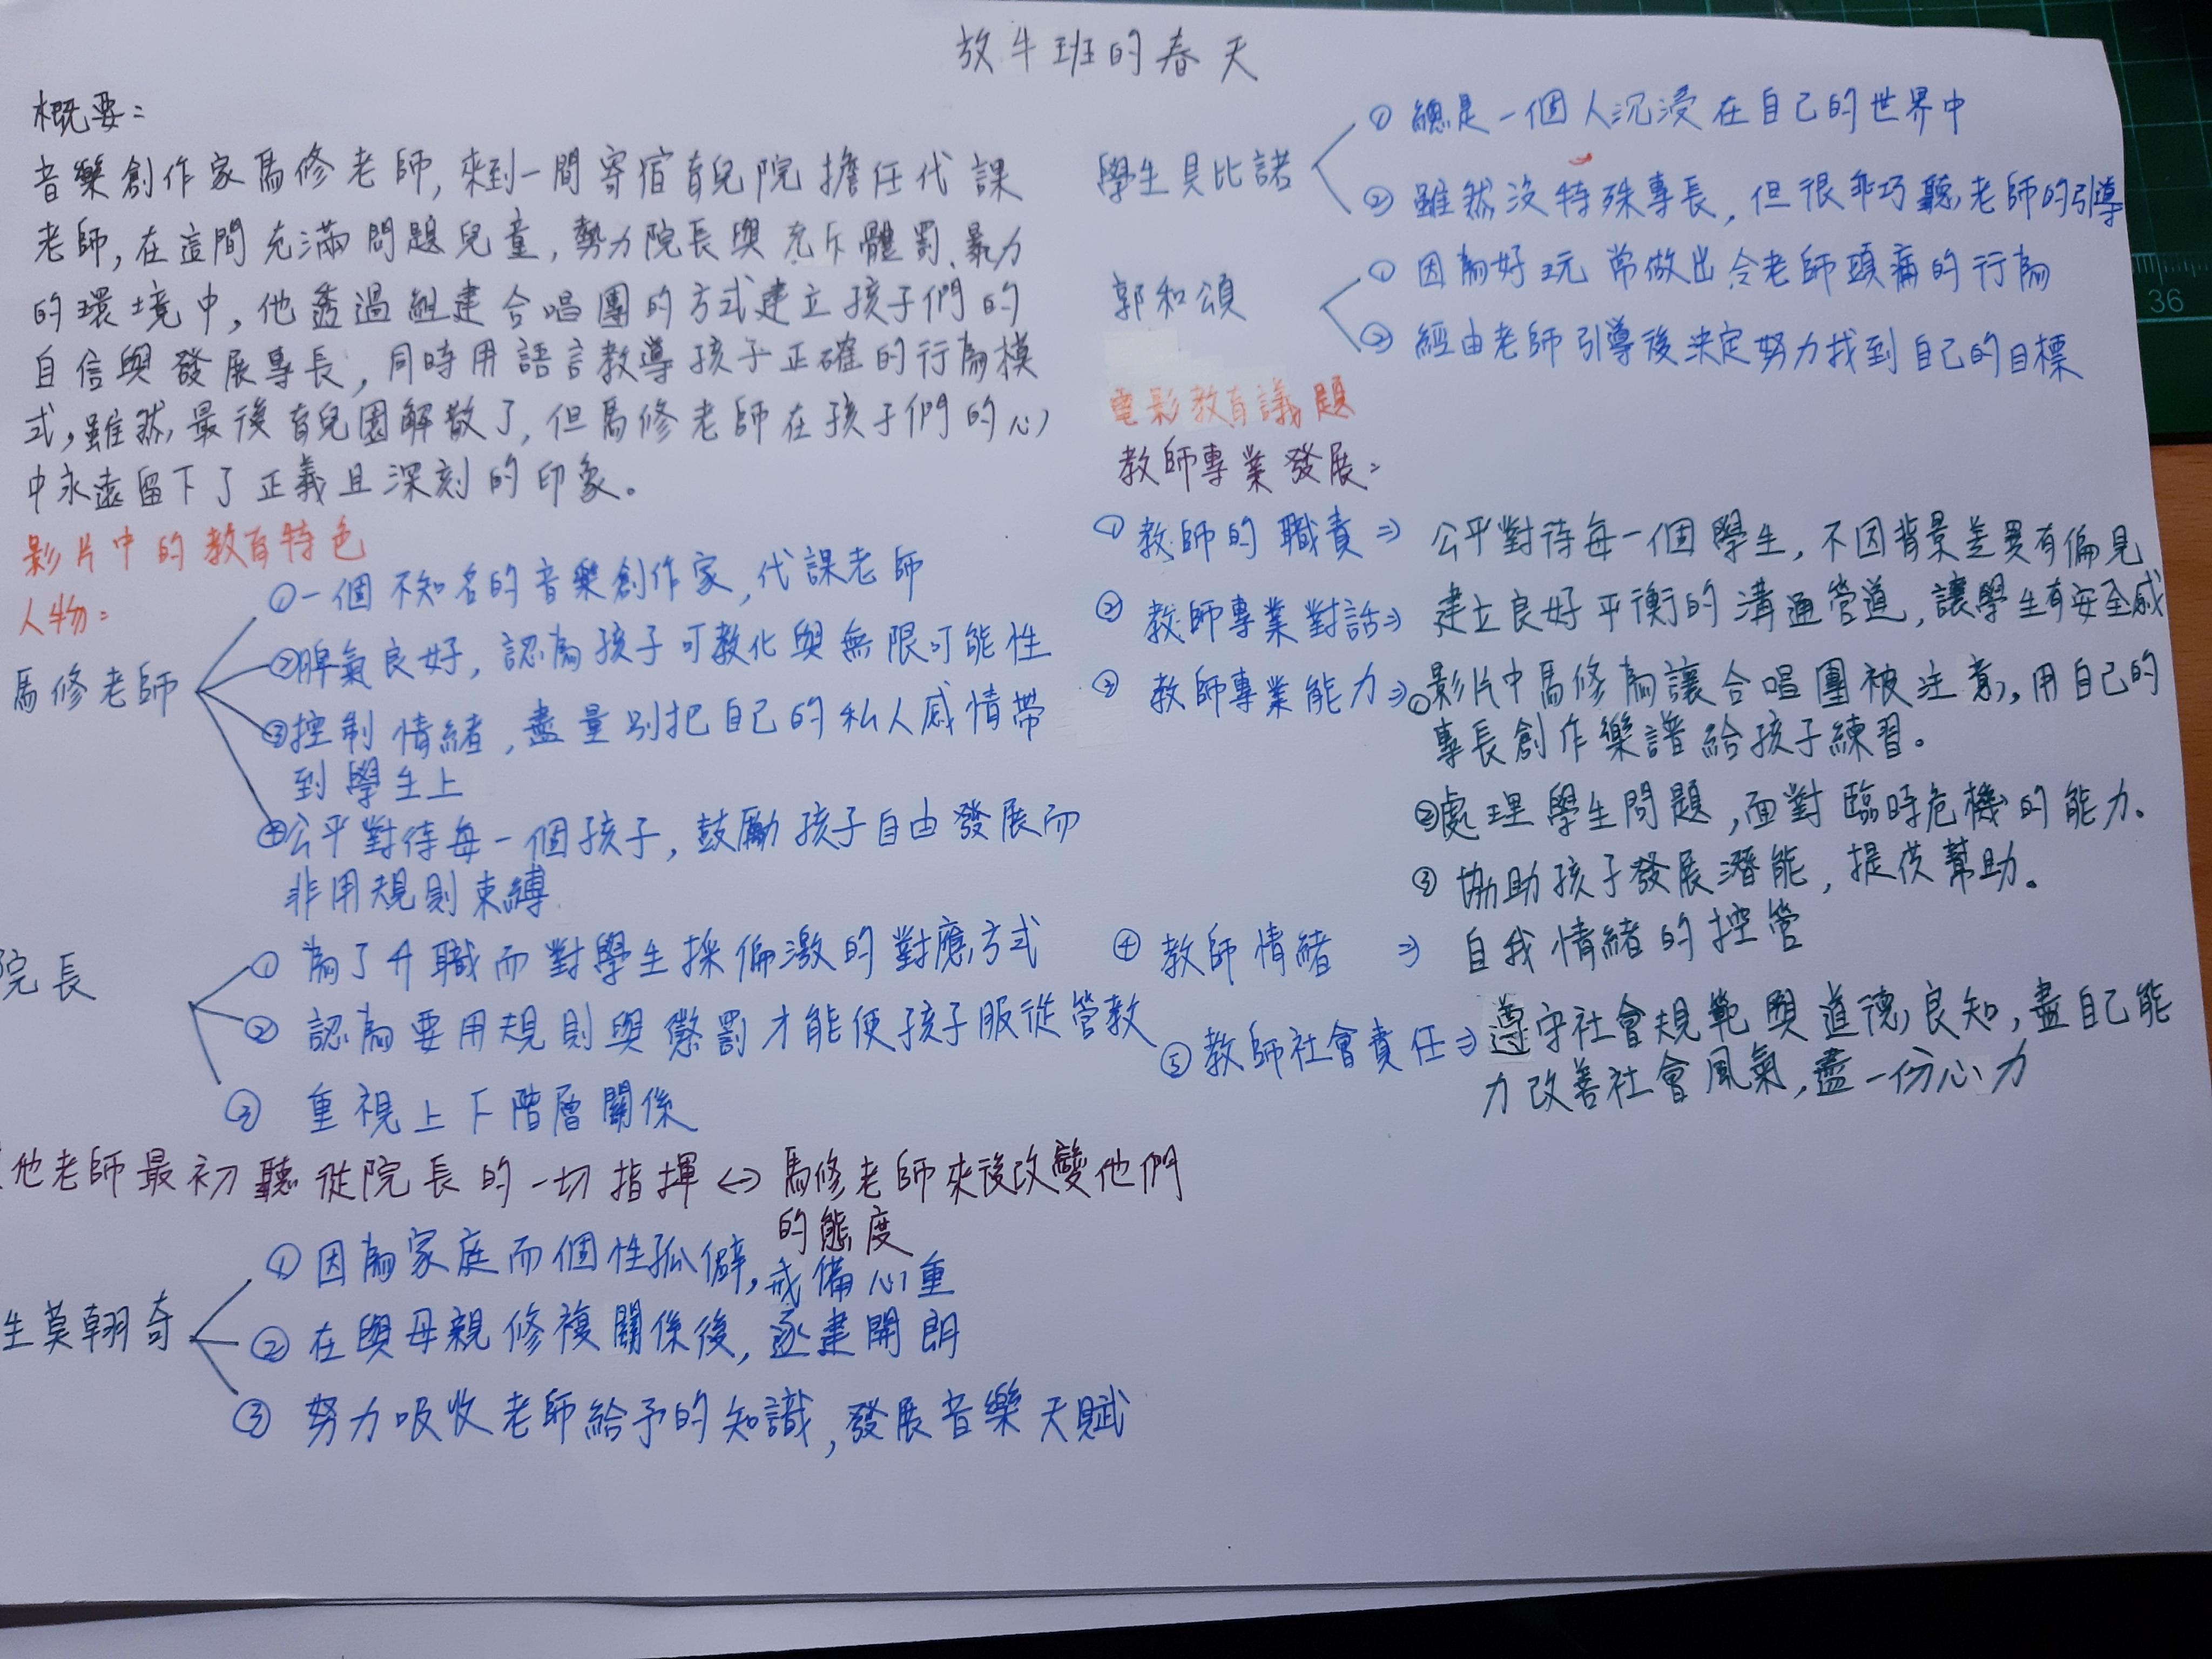 放牛班的春天
概要:
音樂創作家馬修老師,來到一間寄宿育兒院擔任代課
老師,在這間充滿問題兒童,勢力院長與充斥體罰、暴力
的環境中,他透過組建合唱團的方式建立孩子們的
自信與發展專長,同時用語言教導孩子正確的行為模
式,雖然最後育兒園解散了,但馬修老師在孩子們的心
中永遠留下了正義且深刻的印象。
影片中的教育特色
人物:
馬修老師
①一個不知名的音樂創作家,代課老師
②脾氣良好,認為孩子可教化與無限可能性
③控制情緒,盡量別把自己的私人感情帶
到學生上
④公平對待每一個孩子,鼓勵孩子自由發展而
非用規則束縛
院長
①為了升職而對學生採偏激的對應方式
②認為要用規則與懲罰才能使孩子服從管教
③重視上下階層關係
他老師最初聽從院長的一切指揮↔馬修老師來後改變他們
的態度
生莫翰奇
①因為家庭而個性孤僻,戒備心重
②在與母親修複關係後,逐建開朗
③努力吸收老師給予的知識,發展音樂天賦
學生貝比諾
①總是一個人沉浸在自己的世界中
②雖然沒特殊專長,但很乖巧聽老師的引導
郭和頌
①因為好玩常做出令老師頭痛的行為
②經由老師引導後決定努力找到自己的目標
電影教育議題
教師專業發展:
①教師的職責⇒公平對待每一個學生,不因背景差異有偏見
②教師專業對話⇒建立良好平衡的溝通管道,讓學生有安全感
③教師專業能力⇒①影片中馬修為讓合唱團被注意,用自己的
專長創作樂譜給孩子練習。
②處理學生問題,面對臨時危機的能力。
③協助孩子發展潛能,提供幫助。
④教師情緒⇒自我情緒的控管
⑤教師社會責任⇒遵守社會規範與道德良知,盡自己能
力改善社會風氣,盡一份心力
36